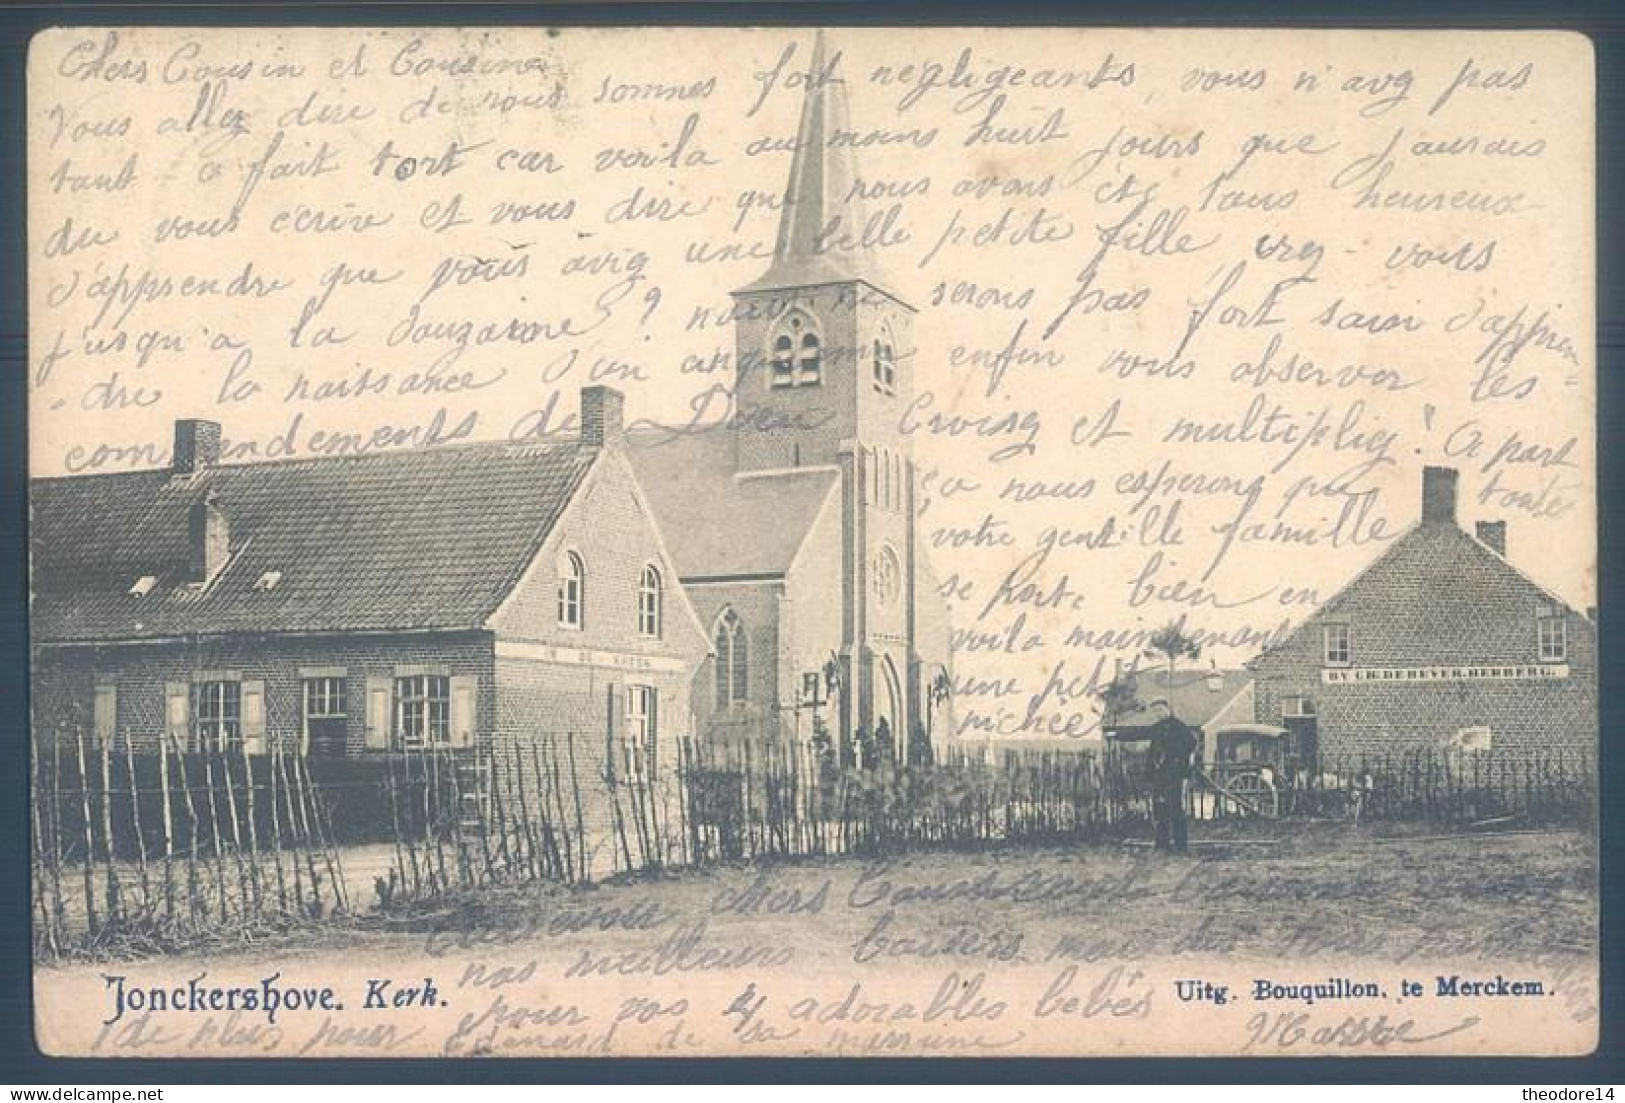 Chers Cousin et Cousine
Vous allez dire de nous sommes fort négligeants, vous n'avez pas
tant à fait tort car voila au moins huit jours que j'aurais
du vous écrire et vous dire que nous avons été tous heureux
d'apprendre que vous aviez une belle petite fille, irez-vous
jusqu'à la douzaine? nous ne serons pas fort sain d'appren-
-dre la naissance d'un cinquième enfin vous observer les
commendements de Dieu Croisez et multipliez! A part
ça nous esperons que toute
votre gentille famille
se porte bien en
voila maintenant
une petite
nichée
Au revoir chers Cousin
nos meilleurs baisers
pour vos 4 adorables bébés
de plus pour Edouard de sa marraine
IN DE KERK
BY CH. DEBEVER. HERBERG.
Jonckershove. Kerk.
Uitg. Bouquillon, te Merckem.
theodore14